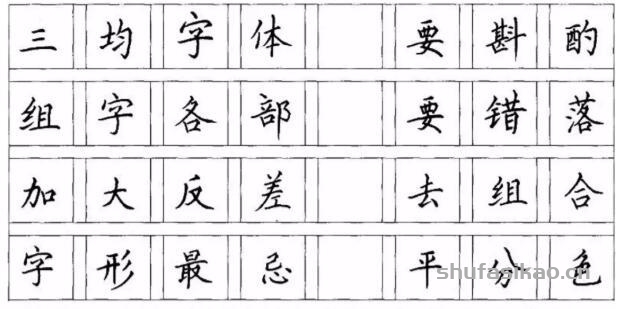 三均字体 要斟酌
组字各部 要错落
加大反差 去组合
字形最忌 平分色
shufasikao.cn